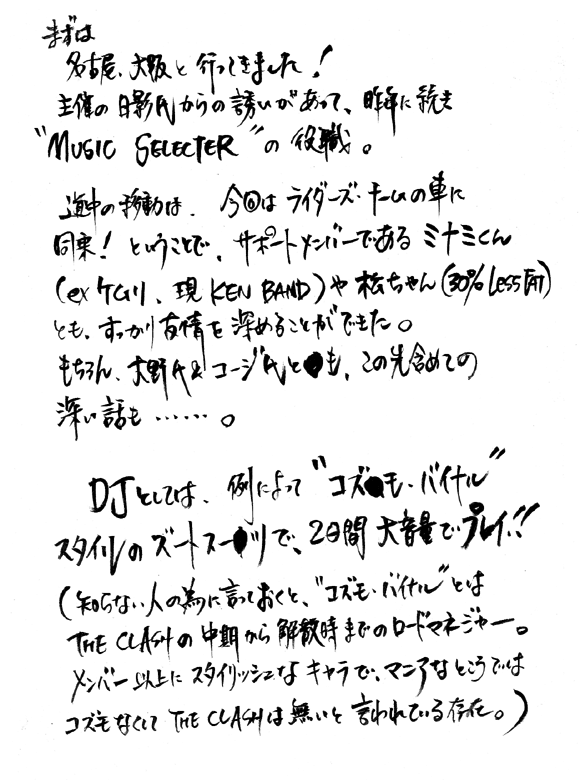 まずは
名古屋、大阪と行ってきました!
主催の日影氏からの誘いがあって、昨年に続き
"MUSIC SELECTER"の役職。
道中の移動は、今回はライダーズ・チームの車に
同乗!ということで、サポートメンバーであるミナミくん
(ex ケムリ、現 KEN BAND)や松ちゃん(30% Less FAT)
とも、すっかり友情を深めることができた。
もちろん、大野氏&コージ氏とも、この先含めての
深い話も……。
DJとしては、例によって"コズモ・バイナル"
スタイルのズートスーツで、2日間大音量でプレイ!!
(知らない人の為に言っておくと、"コズモ・バイナル"とは
THE CLASHの中期から解散時までのロードマネジャー。
メンバー以上にスタイリッシュなキャラで、マニアなところでは
コズモなくしてTHE CLASHは無いと言われている存在。)